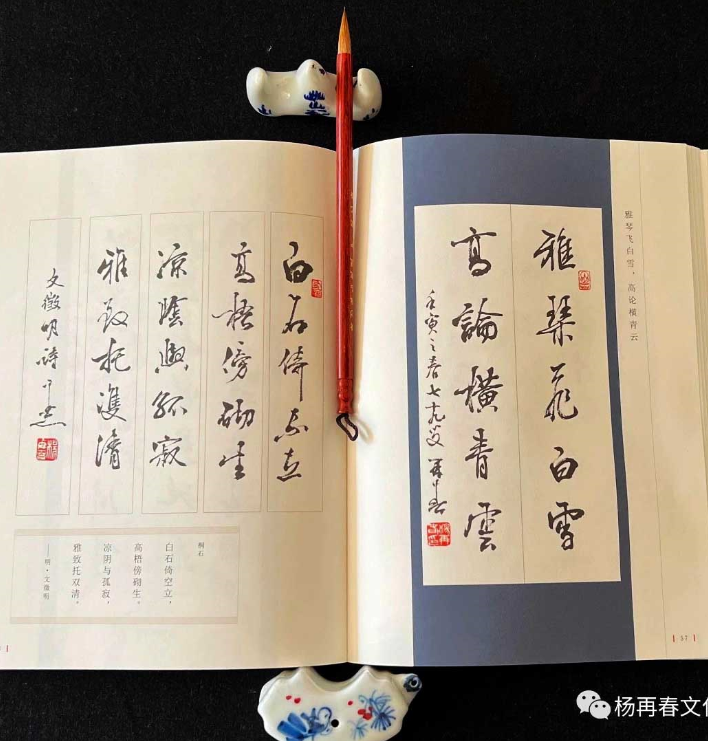 白石倚空立
高梧傍砌生
涼陰與孤寂
雅致托雙清
文徵明詩 再春
桐石
白石倚空立，
高梧傍砌生。
凉阴与孤寂，
雅致托双清。
——明·文徵明
雅琴飞白雪，高论横青云
雅琴飛白雪
高論橫青雲
壬寅之春七十九叟 再春
57
杨再春文